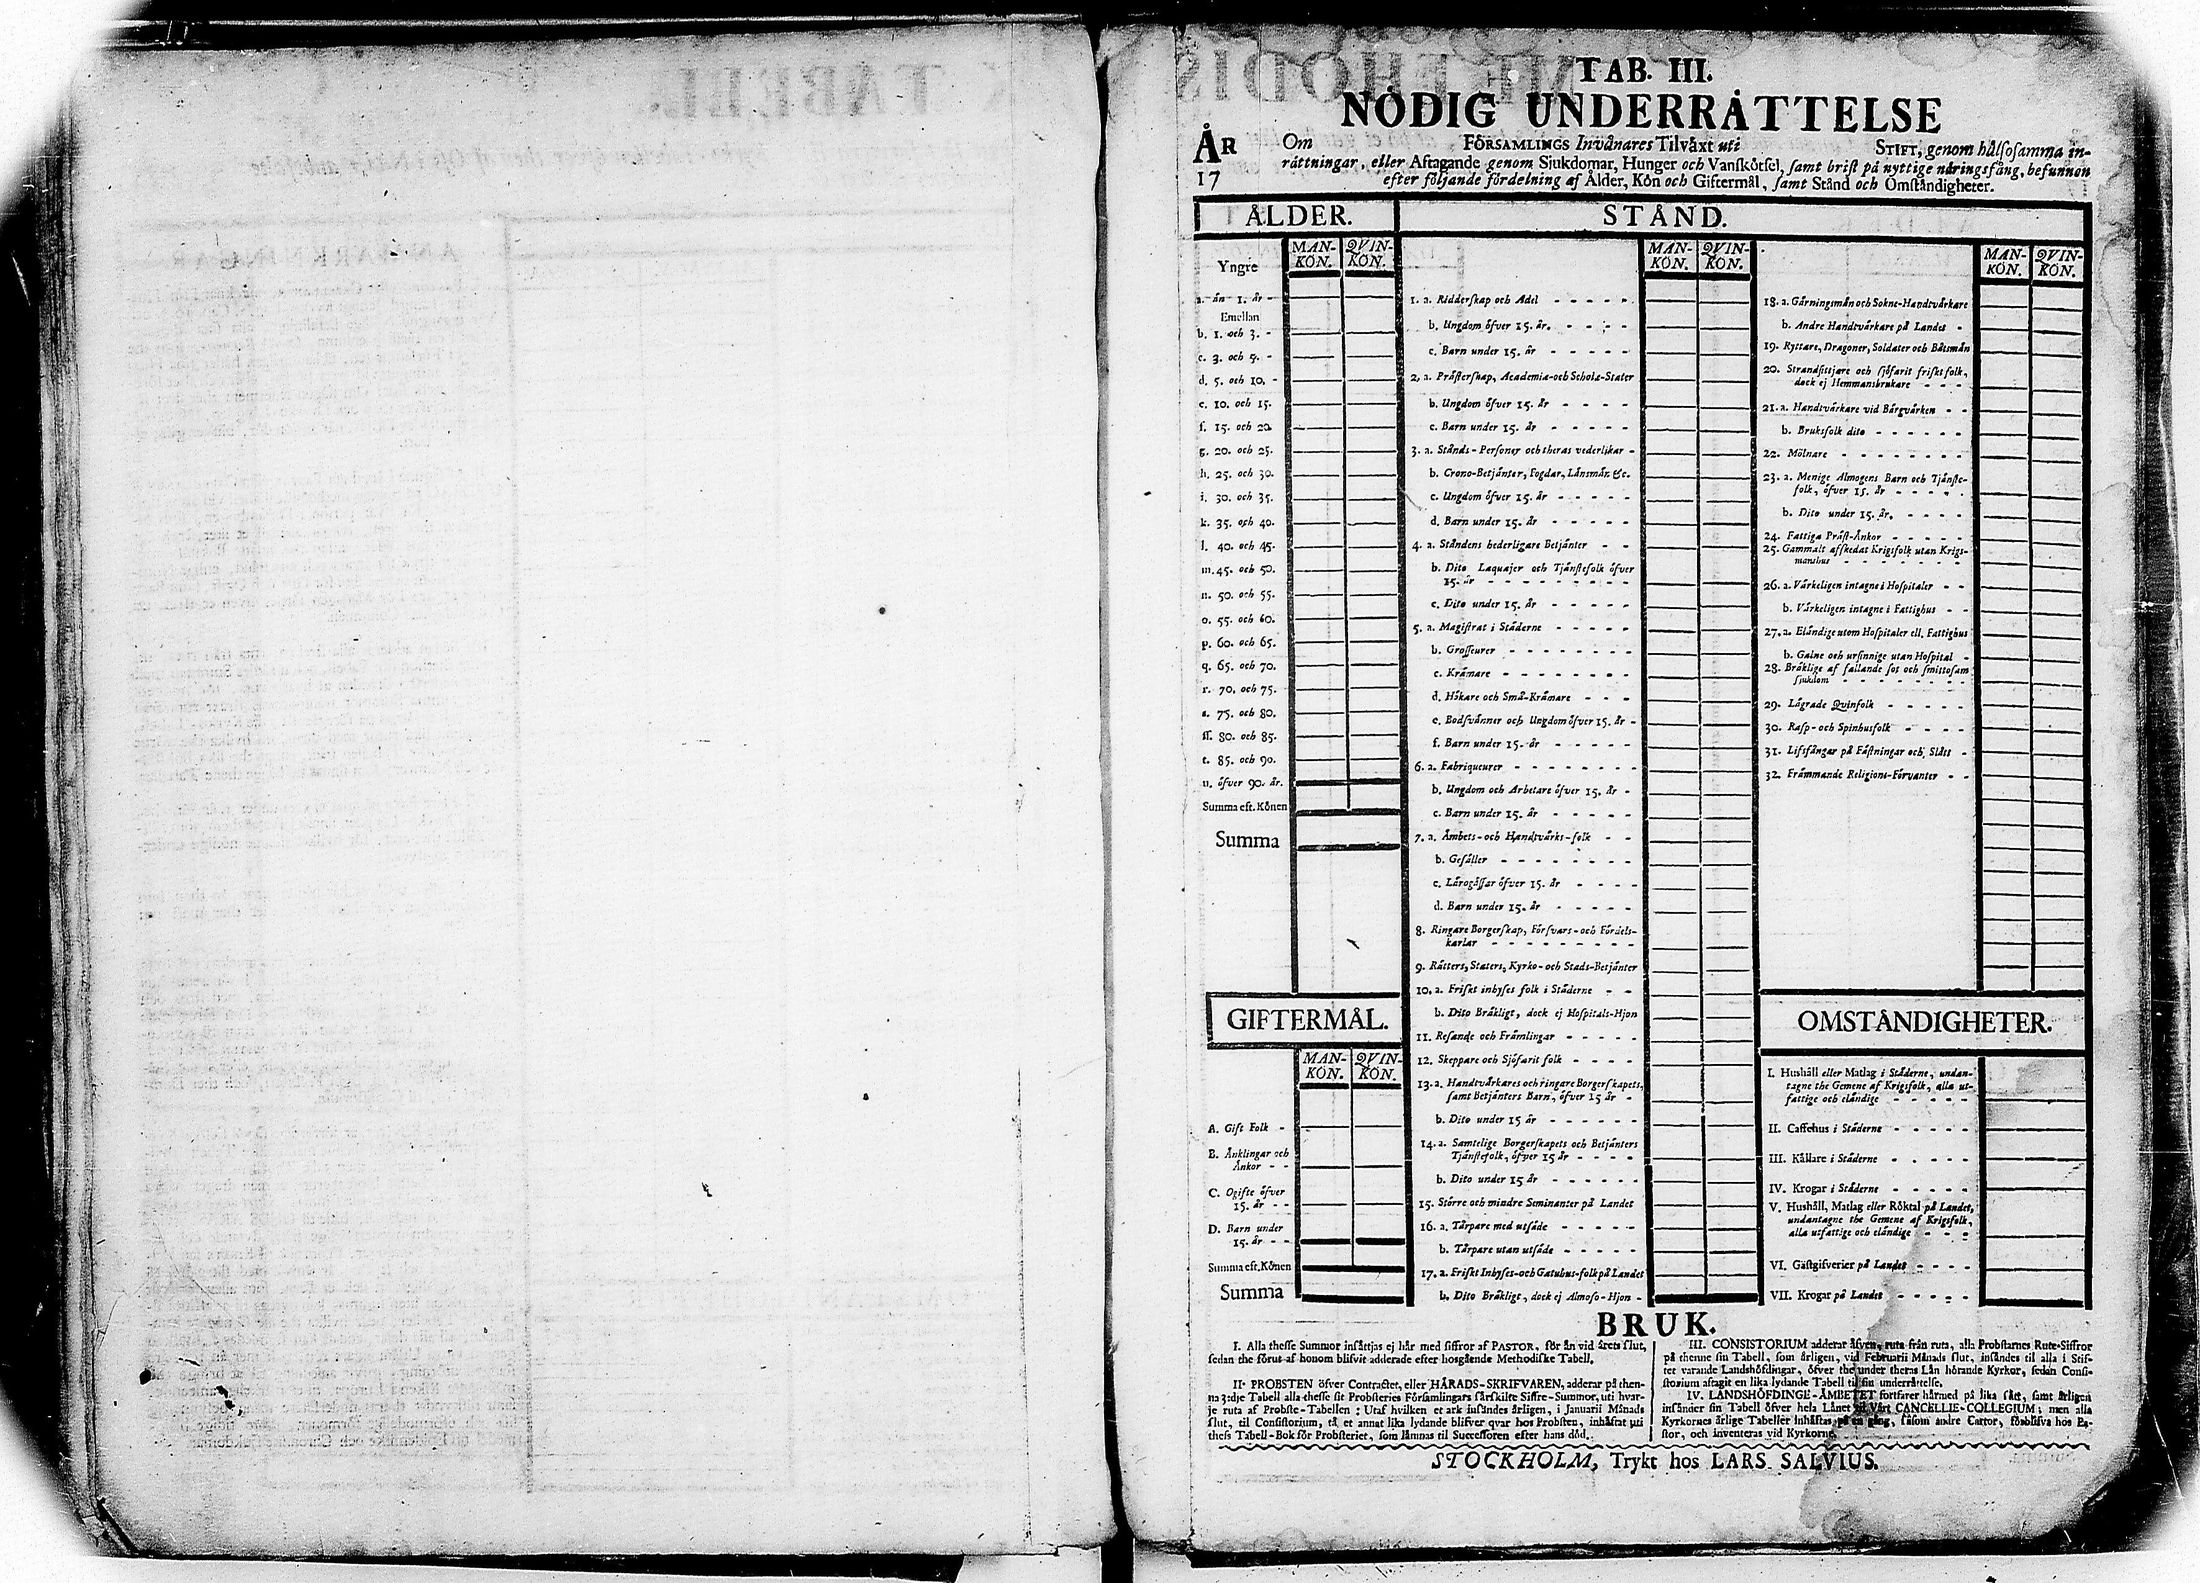 TAB. III.
NÖDIG UNDERRÄTTELSE
ÅR
17
Om FÖRSAMLINGS Invånares Tilväxt uti STIFT, genom hälsosamma in-
rättningar, eller Aftagande genom Sjukdomar, Hunger och Vanskötsel, samt brist på nyttige näringsfång, befunnen
efter följande fördelning af Ålder, Kön och Giftermål, samt Stånd och Omständigheter.
ÅLDER.
MAN-KÖN. QVIN-KÖN.
Yngre
a. än 1. år -
Emellan
b. 1. och 3. -
c. 3. och 5. -
d. 5. och 10. -
e. 10. och 15.
f. 15. och 20.
g. 20. och 25.
h. 25. och 30.
i. 30. och 35.
k. 35. och 40.
l. 40. och 45.
m. 45. och 50.
n. 50. och 55.
o. 55. och 60.
p. 60. och 65.
q. 65. och 70.
r. 70. och 75.
s. 75. och 80.
ss. 80. och 85.
t. 85. och 90.
u. öfver 90. år.
Summa eft. Könen
Summa
GIFTERMÅL.
MAN-KÖN. QVIN-KÖN.
A. Gift Folk -
B. Änklingar och
Änkor - -
C. Ogifte öfver
15. år - -
D. Barn under
15. år - -
Summa eft. Könen
Summa
STÅND.
MAN-KÖN. QVIN-KÖN.
1. a. Ridderskap och Adel - - - - -
b. Ungdom öfver 15. år. - - - -
c. Barn under 15. år - - - - -
2. a. Prästerskap, Academiæ-och Scholæ-Stater
b. Ungdom öfver 15. år - - - -
c. Barn under 15. år - - - - -
3. a. Stånds-Personer och theras vederlikar -
b. Crono-Betjänter, Fogdar, Länsmän &c.
c. Ungdom öfver 15. år - - - -
d. Barn under 15. år - - - - -
4. a. Ståndens hederligare Betjänter - -
b. Dito Laquajer och Tjänstefolk öfver
15. år - - - - - - - -
c. Dito under 15. år - - - - -
5. a. Magistrat i Städerne - - - - -
b. Grosseurer - - - - - - -
c. Krämare - - - - - - - -
d. Hökare och Små-Krämare - - -
e. Bodsvänner och Ungdom öfver 15. år -
f. Barn under 15. år - - - - -
6. a. Fabriqueurer - - - - - - -
b. Ungdom och Arbetare öfver 15. år -
c. Barn under 15. år - - - - -
7. a. Ämbets-och Handtvärks-folk - -
b. Gesäller - - - - - - - -
c. Lärogässar öfver 15. år - - - -
d. Barn under 15. år - - - - -
8. Ringare Borgerskap, Försvars-och Fördels-
karlar - - - - - - - - -
9. Rätters, Staters, Kyrko-och Stads-Betjänter
10. a. Friskt inhyses folk i Städerne - -
b. Dito Bräkligt, dock ej Hospitals-Hjon
11. Resande och Främlingar - - - -
12. Skeppare och Sjöfarit folk - - - -
13. a. Handtvärkares och ringare Borgerskapets,
samt Betjänters Barn, öfver 15 år -
b. Dito under 15 år - - - - -
14. a. Samtelige Borgerskapets och Betjänters
Tjänstefolk, öfver 15 år - - - -
b. Dito under 15 år - - - - -
15. Större och mindre Seminanter på Landet
16. a. Tårpare med utsäde - - - - -
b. Tårpare utan utsäde - - - - -
17. a. Friskt Inhyses-och Gatuhus-folk på Landet
b. Dito Bräkligt, dock ej Almoso-Hjon -
MAN-KÖN. QVIN-KÖN.
18. a. Gärningsmän och Sokne-Handtvärkare
b. Andre Handtvärkare på Landet -
19. Ryttare, Dragoner, Soldater och Båtsmän
20. Strandsittjare och sjöfarit friskt folk,
dock ej Hemmansbrukare - - - -
21. a. Handtvärkare vid Bärgvärken - -
b. Bruksfolk dito - - - - - -
22. Mölnare - - - - - - - -
23. a. Menige Almogens Barn och Tjänste-
folk, öfver 15. år - - - - -
b. Dito under 15. år. - - - - -
24. Fattiga Präst-Änkor - - - - -
25. Gammalt afskedat Krigsfolk utan Krigs-
manshus - - - - - - - -
26. a. Värkeligen intagne i Hospitaler - -
b. Värkeligen intagne i Fattighus - -
27. a. Eländige utom Hospitaler ell. Fattighus
b. Galne och ursinnige utan Hospital -
28. Bräklige af fallande sot och smittosam
sjukdom - - - - - - - -
29. Lägrade Qvinfolk - - - - -
30. Rasp-och Spinhusfolk - - - -
31. Lifsfångar på Fästningar och Slått -
32. Främmande Religions-Förvanter - -
OMSTÄNDIGHETER.
I. Hushåll eller Matlag i Städerne, undan-
tagne the Gemene af Krigsfolk, alla ut-
fattige och eländige - - - - -
II. Caffehus i Städerne - - - - -
III. Källare i Städerne - - - - -
IV. Krogar i Städerne - - - - -
V. Hushåll, Matlag eller Röktal på Landet,
undantagne the Gemene af Krigsfolk,
alla utfattige och eländige - - -
VI. Gästgifverier på Landet - - - -
VII. Krogar på Landet - - - - -
BRUK.
I. Alla thesse Summor insättjas ej här med siffror af PASTOR, för än vid årets slut,
sedan the förut af honom blifvit adderade efter hosgående Methodiske Tabell.
II. PROBSTEN öfver Contractet, eller HÄRADS-SKRIFVAREN, adderar på then-
na 3:dje Tabell alla thesse sit Probsteries Församlingars särskilte Siffre-Summor, uti hvar-
je ruta af Probste-Tabellen: Utaf hvilken et ark insändes årligen, i Januarii Månads
slut, til Consistorium, tå et annat lika lydande blifver qvar hos Probsten, inhäftat uti
thess Tabell-Bok för Probsteriet, som lämnas til Successoren efter hans död.
III. CONSISTORIUM adderar äfven, ruta från ruta, alla Probstarnes Rute-Siffror
på thenne sin Tabell, som årligen, vid Februarii Månads slut, insändes til alla i Stif-
tet varande Landshöfdingar, öfver the under theras Län hörande Kyrkor, sedan Consi-
storium aftagit en lika lydande Tabell til sin underrättelse.
IV. LANDSHÖFDINGE-ÄMBETET fortfarer härmed på lika sätt, samt årligen
insänder sin Tabell öfver hela Länet til Vårt CANCELLIE-COLLEGIUM; men alla
Kyrkornes årlige Tabeller inhäftas på en gång, såsom andre Cartor, förblifva hos Pa-
stor, och inventeras vid Kyrkorne.
STOCKHOLM, Trykt hos LARS SALVIUS.